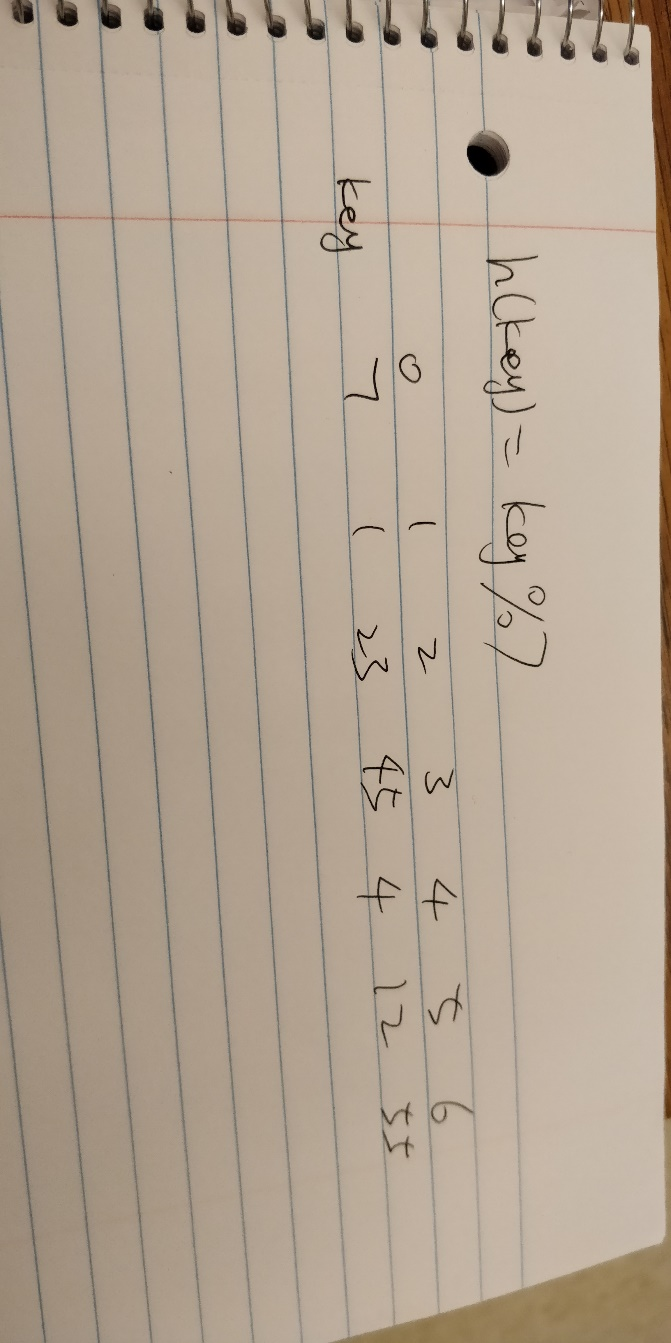 h(key) = key % 7
0 1 2 3 4 5 6
key 7 1 23 45 4 12 55